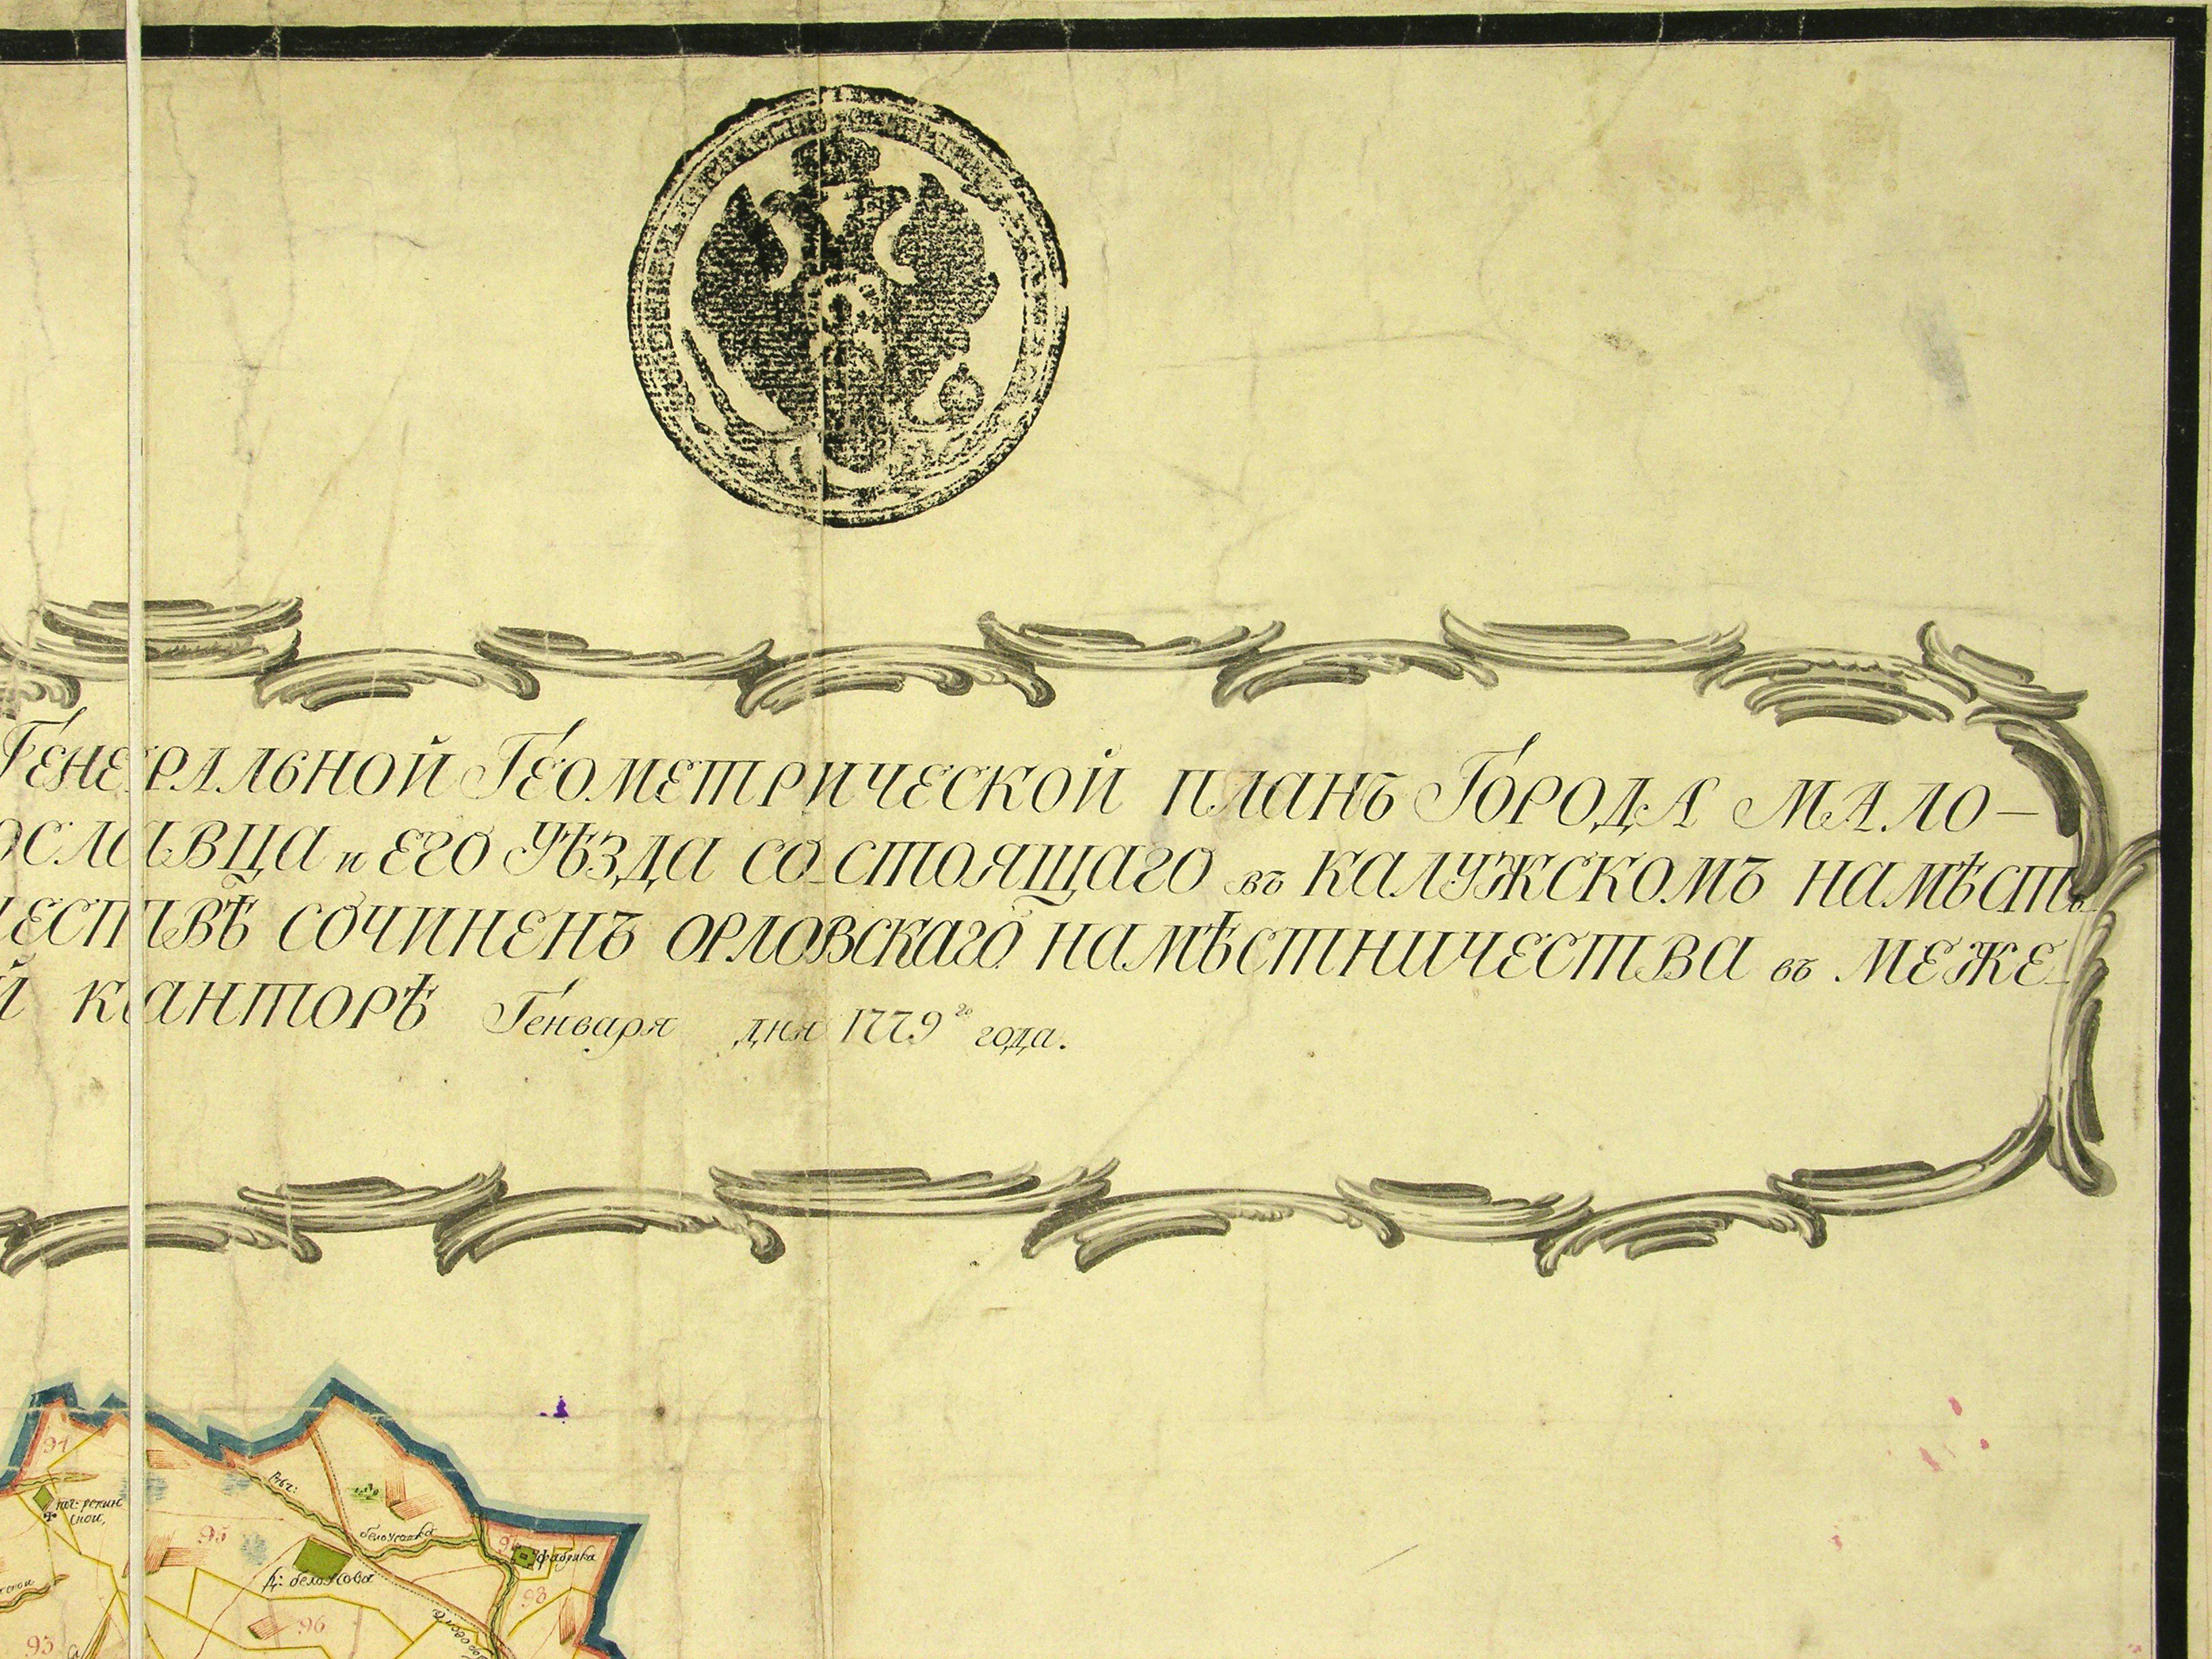 Генеральной Геометрической планъ Города МАЛО-
ославца и его Уѣзда состоящаго въ калужскомъ намѣсть
чествѣ сочиненъ орловскаго намѣстничества въ меже-
й канторѣ Генваря дня 1779го года.
91
пог: рекин
ской,
рѣч:
95
белоусовка
фабрика
д: белоусова
98
96
93